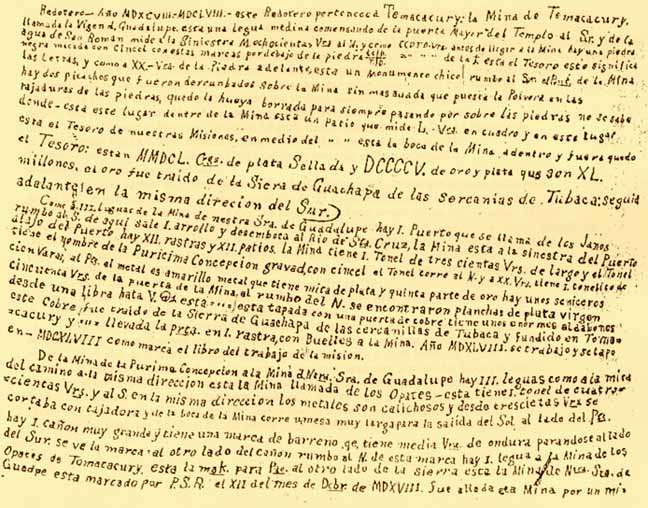 Redotero - Año MDXCVIII-MDCLVIII - este Redotero pertenece á Tomacacury. la Mina de Tomacacury.
llamada la Virgen d. Guadalupe. esta una legua medina comensando de la puerta Mayor del Templo al Sr. y de la
agua de San Roman mide a la siniestra M ochocientas Vrs. al N. y como antes de llegar a la Mina hay una piedra
negra vicada con Cincel con estas marcas por debajo de la piedra de la esta el Tesoro esto significa
las Letras, y como a XX.-Vrs. de la Piedra adelante, esto un Monumento chico rumbo al Sr. de la Mina
hay dos picachos que fueron derrunbados sobre la Mina sin mas auada que puesta la Polvora en las
rajaduras de las piedras, quedo la hueya borrada para siempre pasando por sobre las piedras no se sabe
donde - esta este lugar dentro de la Mina esta un patio que mide L. Vrs. en cuadro y en este lugar
esta el Tesoro de nuestras Misiones, en medio del " " esta la boca de la Mina, adentro y fuera quedo
el Tesoro: estan MMDCL. Crgs. de plata Sellada y DCCCCV. de oro y plata que son XL.
millones, el oro fue traido de la Siera de Guachapa de las sercanias de Tubaca: seguid
adelante en la misma direcion del Sur.
Como á III. leguas de la Mina de nestra Sra. de Guadalupe hay I. Puerto que se llama de los Janos
rumbo al S. de aqui sale I. arrollo y desemboca al Rio de Sta. Cruz, la Mina esta a la sinestra del Puerto
abajo del Puerto hay XII. rastras y XII. patios. la Mina tiene I. Tonel de tres cientas Vrs. de largo y el Tonel
tiene el nombre de la Puricima Concepcion gravad, con cincel el Tonel corre al N. y a XX. Vrs. tiene I. tonelito de
cien Varas, al Pte. el metal es amarillo metal que tiene mita de plata y quinta parte de oro hay unos seniceros
cincuenta Vrs. de la puerta de la Mina, al rumbo del N. se encontraron planchas de plata virgen
desde una libra hata V. esta esta tapada con una puerta de cobre tiene unos enormes aldabones
este Cobre fue traido de la Sierra de Guachapa de las cercanillas de Tubaca y fundido en Toma-
cacury y llevada la prta. en I. rastra, con Buelles a la Mina. Año MDXLVIII. se trabajo y se tapo
en - MDCXLVIII como marca el libro del trabajo de la mision.
De la Mina de la Purima Concepcion a la Mina d. Ntra. Sra. de Guadalupe hay III. leguas como a la mita
del camino a la misma direccion esta la Mina llamada de los Opates - esta tiene I. tonel de cuatro-
scientas Vrs. y al S. en la misma direccion los metales son calichosos y desde trescietas Vrs. se
cortaba con tajadora y de la boca de la Mina corre u mesa muy larga para la salida del Sol, al lado del Pte.
hay I. cañon muy grande y tiene una marca de barreno qe. tiene media Vra. de ondura parandose al lado
del Sur. se ve la marca al otro lado del cañon rumbo al N. de esta marca hay I. legua a la Mina de los
Opates de Tomacacury. esta la para Pte. al otro lado de la sierra esta la Mina de Ntra. Sra. de
Guadpe esta marcado por P.S.R. el XII del mes de Dcbr. de MDXVIII. fue allada eta Mina por un mi